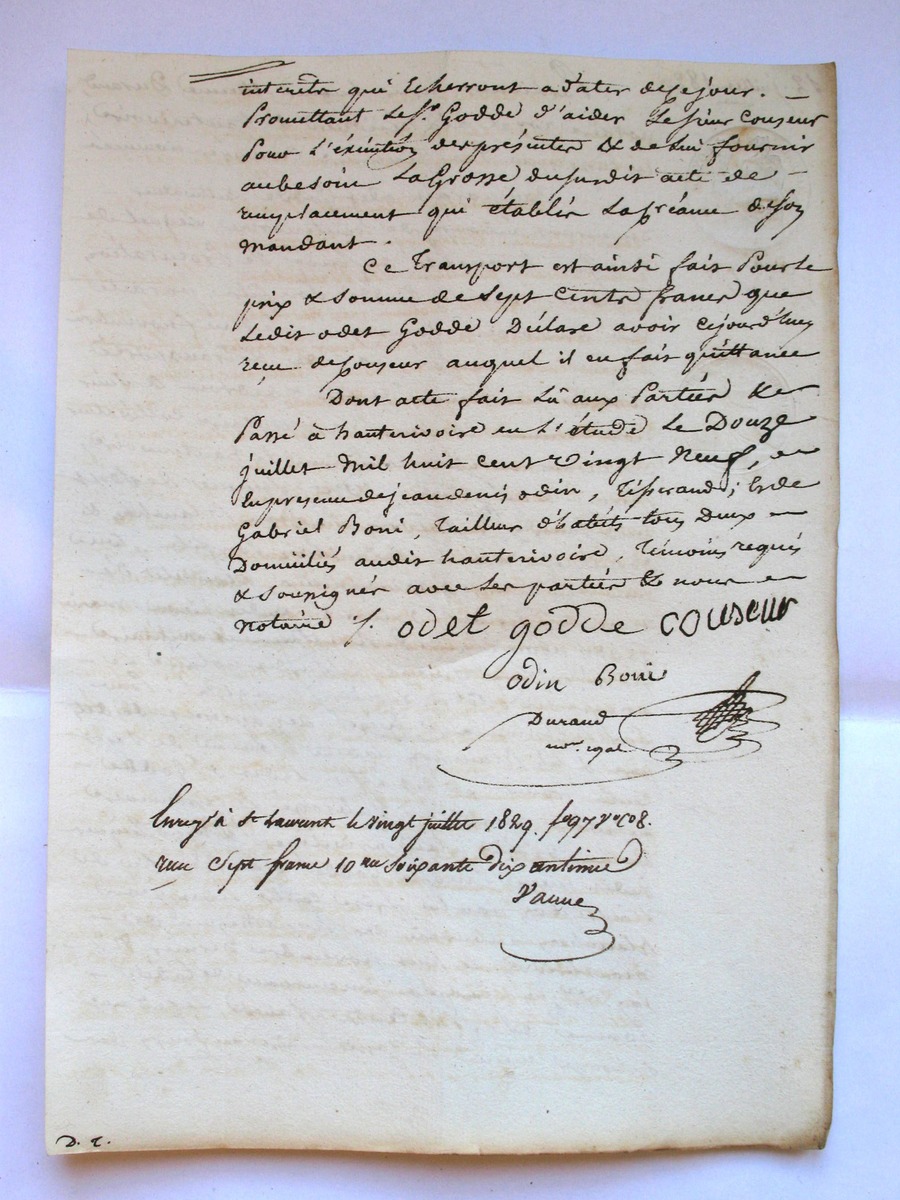 interets qui Echerront a dater de ce jour. —
Promettant Le Sr. Godde d'aider Le Sieur Couseur
Pour L'éxécution des présentes & de Lui fournir
au besoin La Grosse du susdit acte de —
remplacement qui établis La Créance de son
mandant.
Ce Transport est ainsi fait Pour le
prix & somme de Sept Cents francs que
Ledit odet Godde Déclare avoir cejourd'huy
reçu de Couseur auquel il en fait quittance
Dont acte fait Lû aux Parties &
Passé à hauterivoire en L'étude Le Douze
juillet Mil huit Cent Vingt Neuf, en
la presence de jean denis odin, Tisserand; & de
Gabriel Boni, Tailleur d'habits tous Deux —
Domiciliés audit hauterivoire, Témoins requis
& soussignés avec Les parties & nous —
notaire /. odet godde couseur
odin Boni
Durand
nore. royal
Enregé à St Laurent le vingt juillet 1829. fo 97 Vo C 8.
reçu Sept francs 10me Soixante dix centimes
D. T.